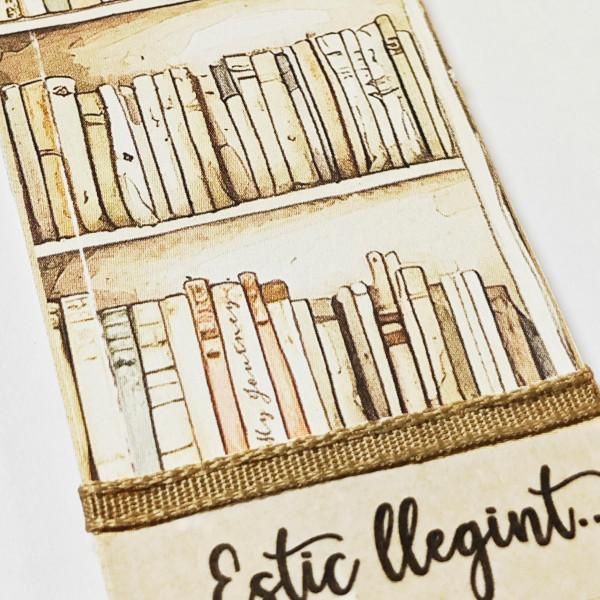 My Journey
Estic llegint...